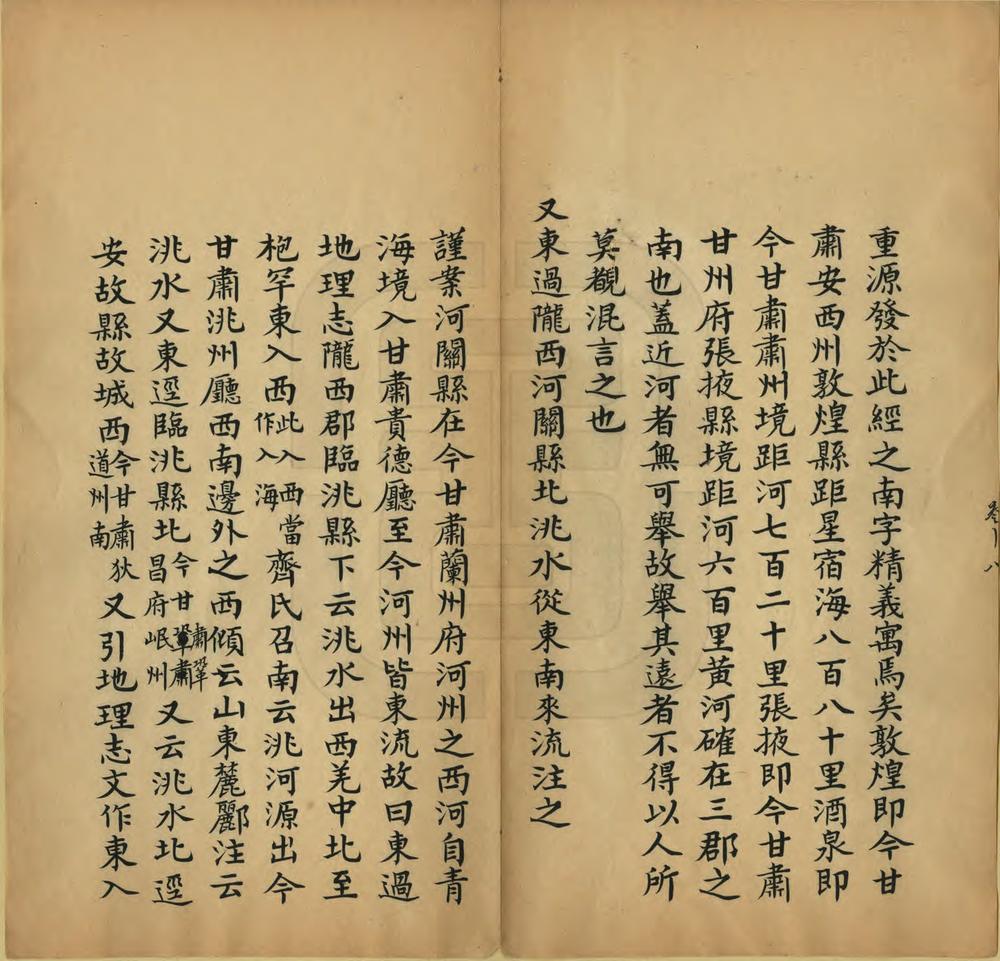 重源發於此經之南字精義寓焉矣敦煌即今甘
肅安西州敦煌縣距星宿海八百八十里酒泉即
今甘肅肅州境距河七百二十里張掖即今甘肅
甘州府張掖縣境距河六百里黃河確在三郡之
南也蓋近河者無可舉故舉其遠者不得以人所
莫覩混言之也
又東過隴西河關縣北洮水從東南來流注之
謹案河關縣在今甘肅蘭州府河州之西河自青
海境入甘肅貴德廳至今河州皆東流故曰東過
地理志隴西郡臨洮縣下云洮水出西羌中北至
枹罕東入西此入西當作入海齊氏召南云洮河源出今
甘肅洮州廳西南邊外之西傾云山東麓酈注云
洮水又東逕臨洮縣北今甘肅鞏昌府岷州又云洮水北逕
安故縣故城西今甘肅狄道州南又引地理志文作東入